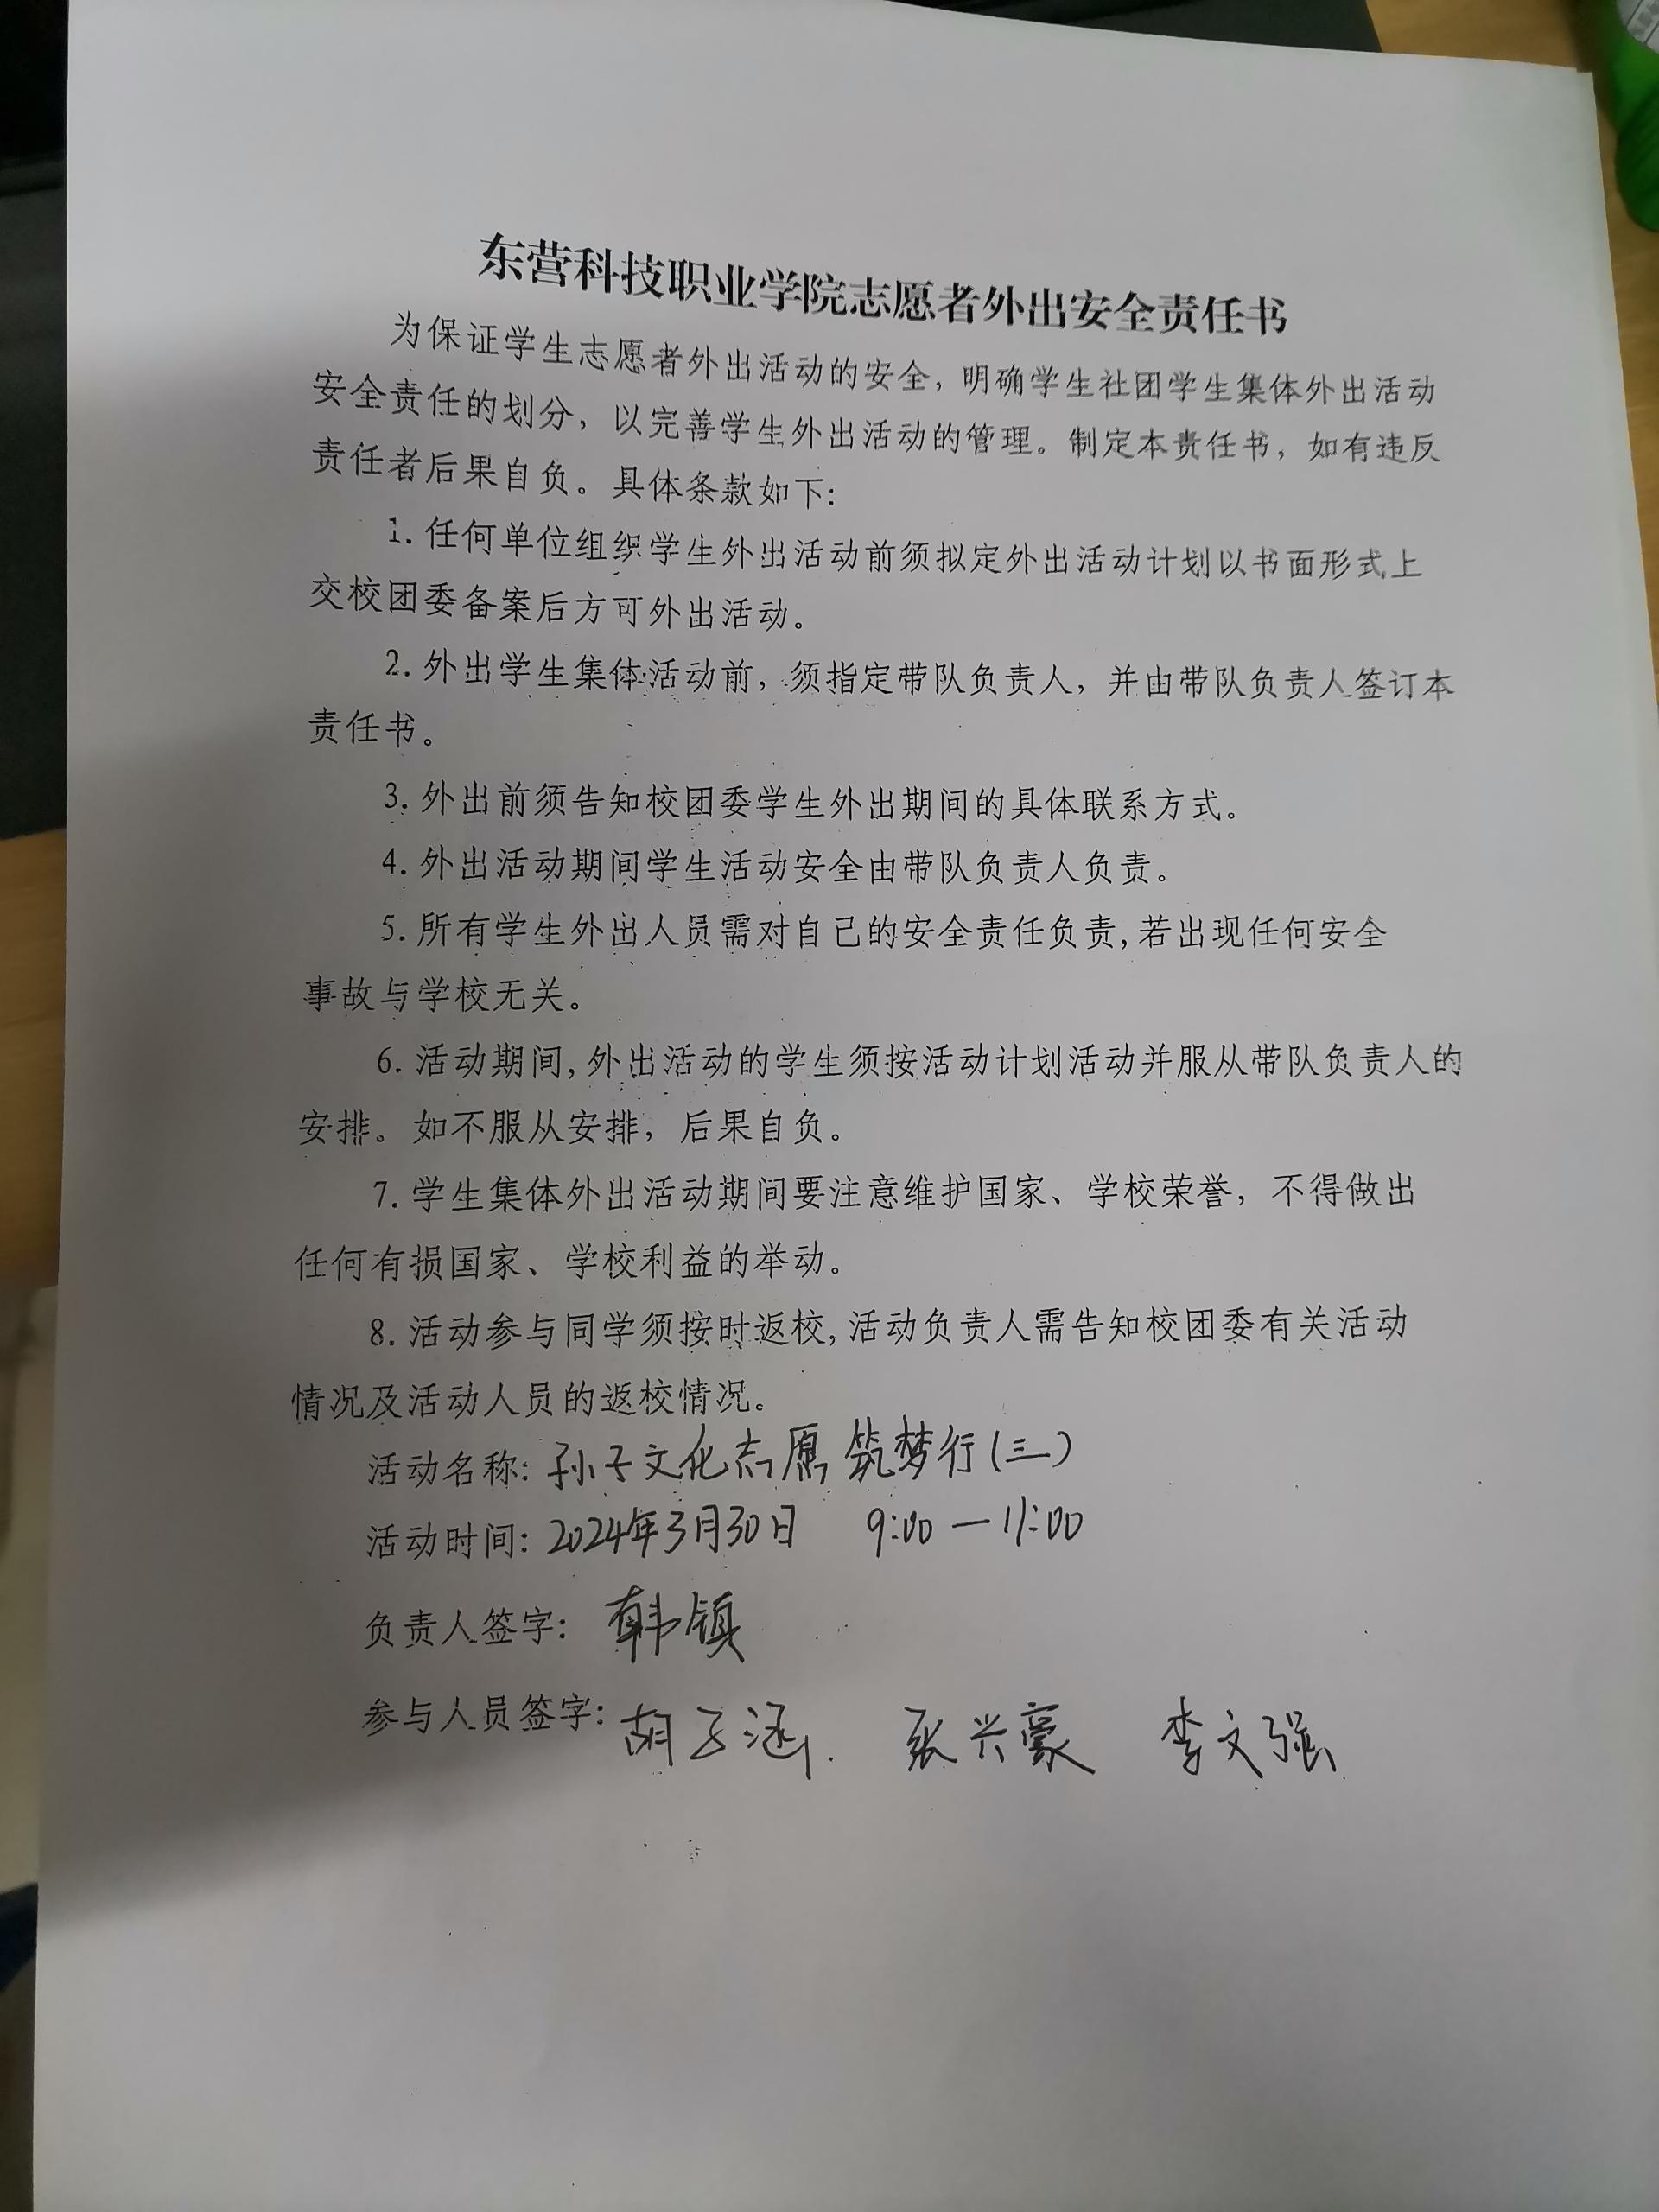 东营科技职业学院志愿者外出安全责任书
为保证学生志愿者外出活动的安全，明确学生社团学生集体外出活动
安全责任的划分，以完善学生外出活动的管理。制定本责任书，如有违反
责任者后果自负。具体条款如下：
1.任何单位组织学生外出活动前须拟定外出活动计划以书面形式上
交校团委备案后方可外出活动。
2.外出学生集体活动前，须指定带队负责人，并由带队负责人签订本
责任书。
3.外出前须告知校团委学生外出期间的具体联系方式。
4.外出活动期间学生活动安全由带队负责人负责。
5.所有学生外出人员需对自己的安全责任负责,若出现任何安全
事故与学校无关。
6.活动期间,外出活动的学生须按活动计划活动并服从带队负责人的
安排。如不服从安排，后果自负。
7.学生集体外出活动期间要注意维护国家、学校荣誉，不得做出
任何有损国家、学校利益的举动。
8.活动参与同学须按时返校,活动负责人需告知校团委有关活动
情况及活动人员的返校情况。
活动名称：孙子文化志愿 筑梦行(三)
活动时间：2024年3月30日 9:00—11:00
负责人签字：韩镇
参与人员签字：胡子涵. 张兴豪 李文强